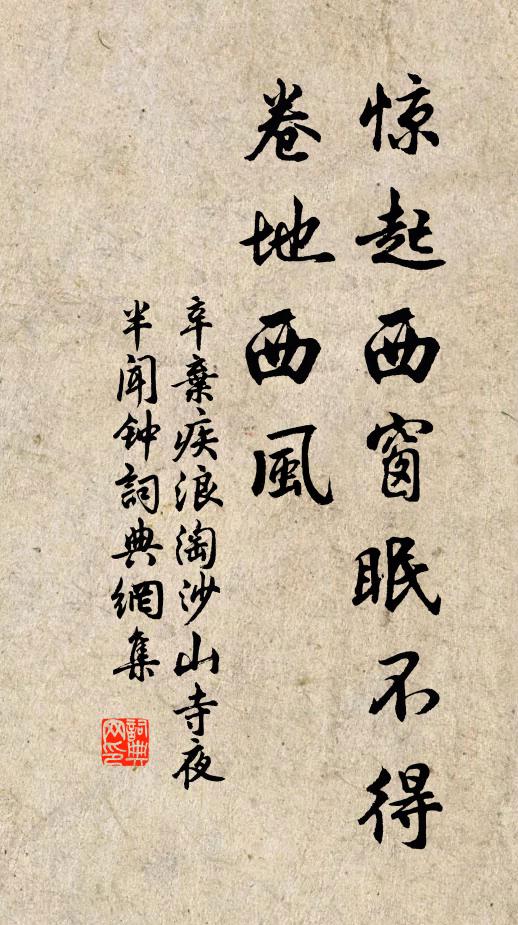 惊起西窗眠不得
卷地西風
辛棄疾浪淘沙山寺夜
半闻钟詞典網集
詞典
网印